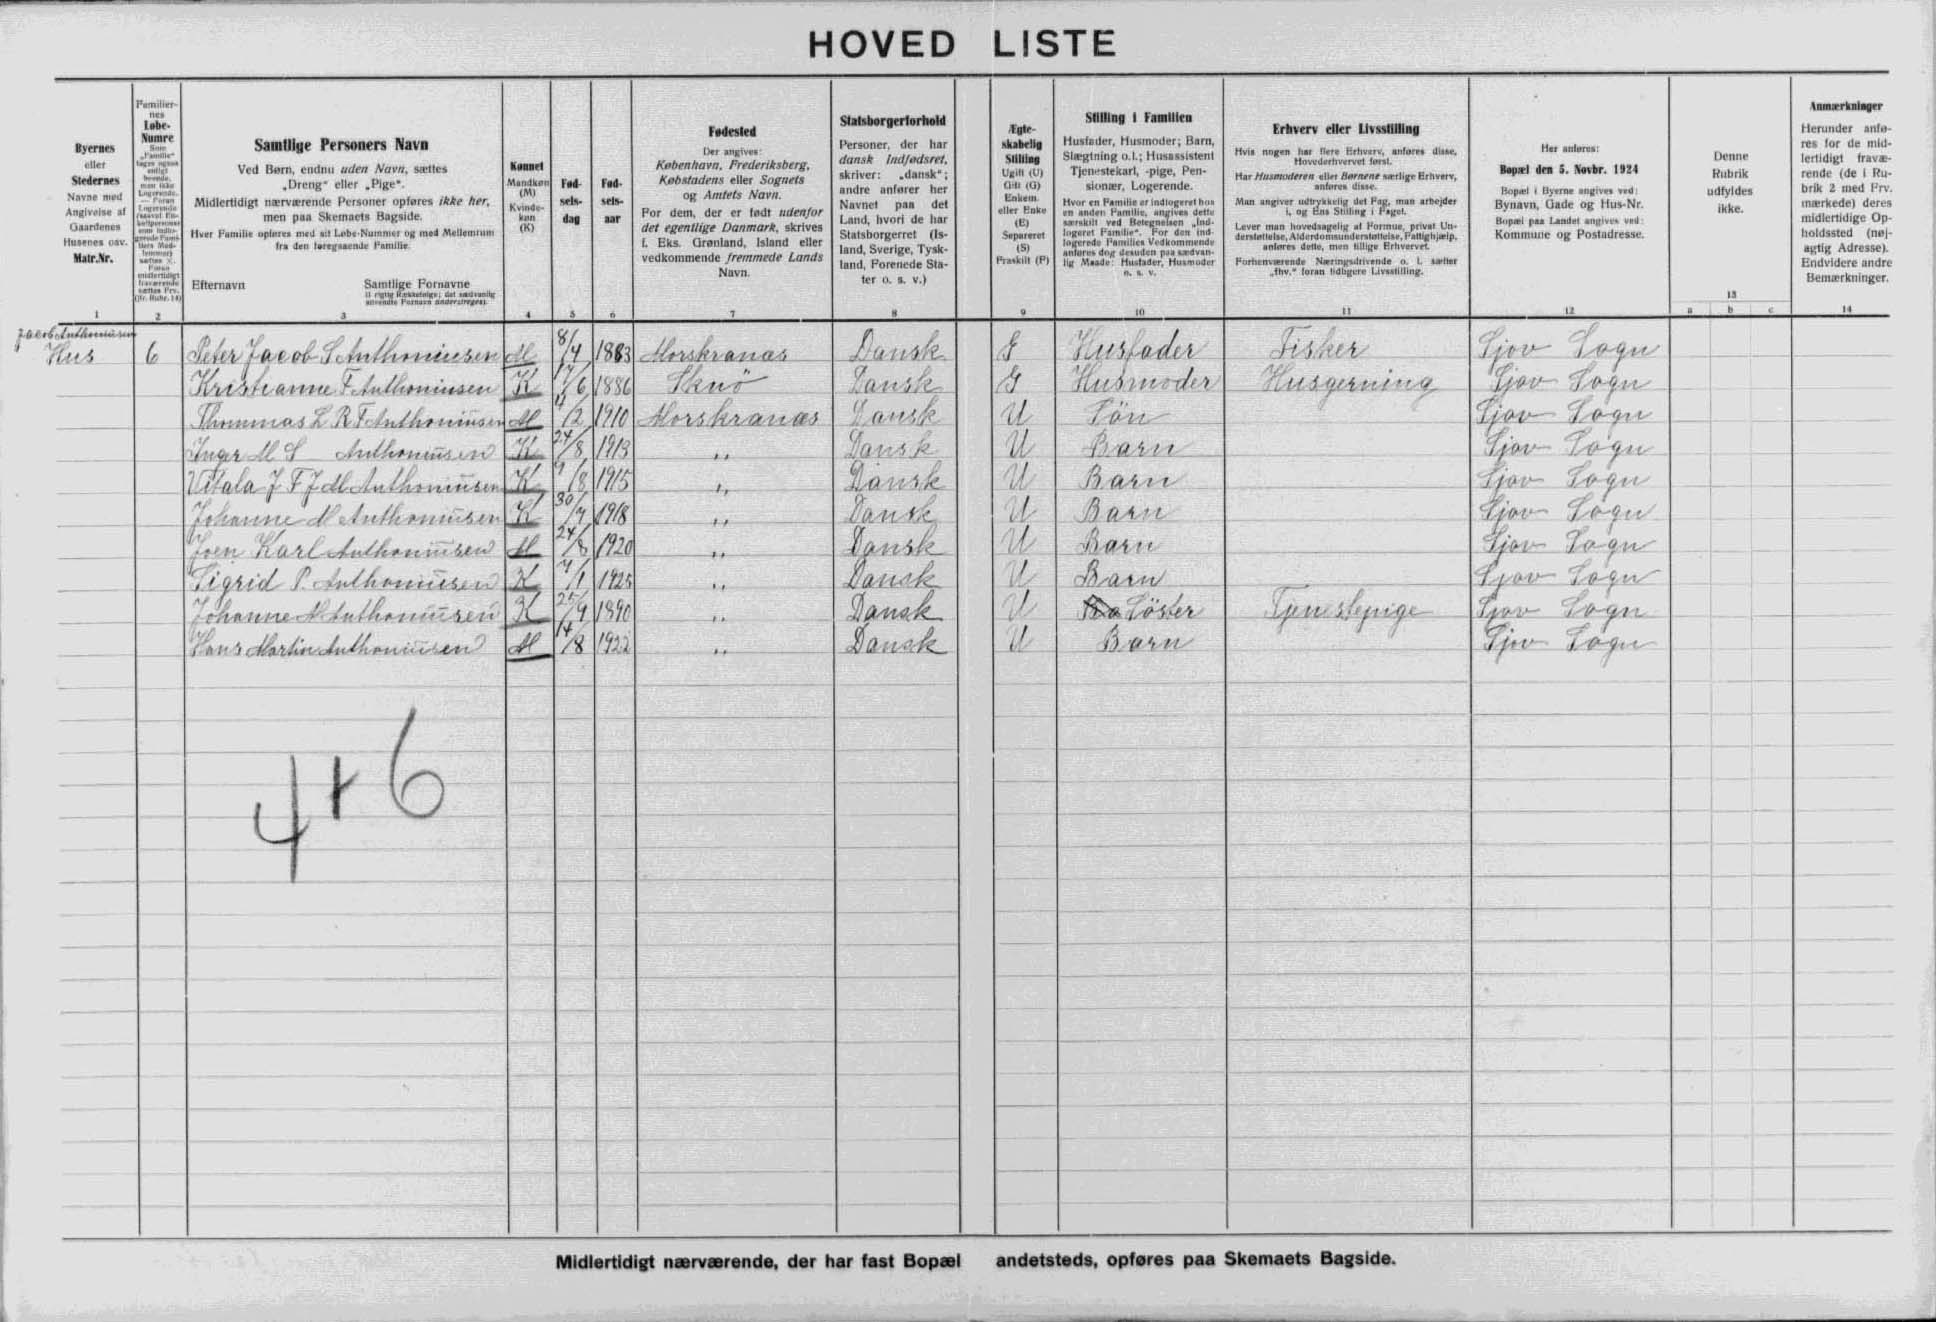 HOVED LISTE
Byernes
eller
Stedernes
Navne med
Angivelse af
Gaardenes
Husenes osv.
Matr.Nr.
1
Familier-
nes
Løbe-
Numre
2
Samtlige Personers Navn
Ved Børn, endnu uden Navn, sættes
„Dreng" eller „Pige".
Midlertidigt nærværende Personer opføres ikke her,
men paa Skemaets Bagside.
Hver Familie opføres med sit Løbe-Nummer og med Mellemrum
fra den foregaaende Familie.
Efternavn
Samtlige Fornavne
(i rigtig Rækkefølge; det sædvanlig
anvendte Fornavn understreges).
3
Kønnet
Mandkøn
(M)
Kvinde-
køn
(K)
4
Fød-
sels-
dag
5
Fød-
sels-
aar
6
Fødested
Der angives:
København, Frederiksberg,
Købstadens eller Sognets
og Amtets Navn.
For dem, der er født udenfor
det egentlige Danmark, skrives
f. Eks. Grønland, Island eller
vedkommende fremmede Lands
Navn.
7
Statsborgerforhold
Personer, der har
dansk Indfødsret,
skriver: „dansk";
andre anfører her
Navnet paa det
Land, hvori de har
Statsborgerret (Is-
land, Sverige, Tysk-
land, Forenede Sta-
ter o. s. v.)
8
Ægte-
skabelig
Stilling
Ugift (U)
Gift (G)
Enkem.
eller Enke
(E)
Separeret
(S)
Fraskilt (F)
9
Stilling i Familien
Husfader, Husmoder; Barn,
Slægtning o.l.; Husassistent
Tjenestekarl, -pige, Pen-
sionær, Logerende.
Hvor en Familie er indlogeret hos
en anden Familie, angives dette
særskilt ved Betegnelsen „Ind-
logeret Familie". For den ind-
logerede Families Vedkommende
anføres dog desuden paa sædvan-
lig Maade: Husfader, Husmoder
o. s. v.
10
Erhverv eller Livsstilling
Hvis nogen har flere Erhverv, anføres disse,
Hovederhvervet først.
Har Husmoderen eller Børnene særlige Erhverv,
anføres disse.
Man angiver udtrykkelig det Fag, man arbejder
i, og Ens Stilling i Faget.
Lever man hovedsagelig af Formue, privat Un-
derstøttelse, Alderdomsunderstøttelse, Fattighjælp,
anføres dette, men tillige Erhvervet.
Forhenværende Næringsdrivende o. l. sætter
„fhv." foran tidligere Livsstilling.
11
Her anføres:
Bopæl den 5. Novbr. 1924
Bopæl i Byerne angives ved:
Bynavn, Gade og Hus-Nr.
Bopæl paa Landet angives ved:
Kommune og Postadresse.
12
Denne
Rubrik
udfyldes
ikke.
13
a b c
Anmærkninger
Herunder anfø-
res for de mid-
lertidigt fravæ-
rende (de i Ru-
brik 2 med Frv.
mærkede) deres
midlertidige Op-
holdssted (nøj-
agtig Adresse).
Endvidere andre
Bemærkninger.
14
Jacob Anthoniusen
Hus 6 Peter Jacob S Anthoniusen M 8/4 1883 Morskranæs Dansk G Husfader Fisker Sjov Sogn
Kristianne F Anthoniusen K 17/6 1886 Sknö Dansk G Husmoder Husgerning Sjov Sogn
Thommas L R F Anthoniusen M 4/2 1910 Morskranæs Dansk U Sön Sjov Sogn
Inger M S Anthoniusen K 24/8 1913 „ Dansk U Barn Sjov Sogn
Vitala J F J M Anthoniusen K 9/8 1915 „ Dansk U Barn Sjov Sogn
Johanne M Anthoniusen K 30/7 1918 „ Dansk U Barn Sjov Sogn
Joen Karl Anthoniusen M 24/8 1920 „ Dansk U Barn Sjov Sogn
Sigrid P. Anthoniusen K 7/1 1925 „ Dansk U Barn Sjov Sogn
Johanne M Anthoniusen K 25/9 1890 „ Dansk U Ba Söster Tjenestepige Sjov Sogn
Hans Martin Anthoniusen M 14/8 1922 „ Dansk U Barn Sjov Sogn
4+6
Midlertidigt nærværende, der har fast Bopæl andetsteds, opføres paa Skemaets Bagside.